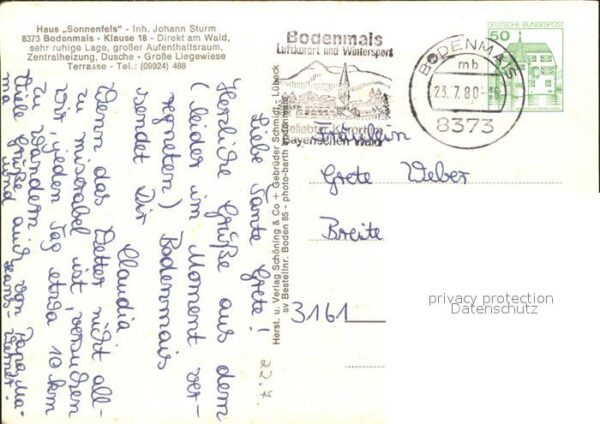 Haus „Sonnenfels" - Inh. Johann Sturm
8373 Bodenmais - Klause 18 - Direkt am Wald,
sehr ruhige Lage, großer Aufenthaltsraum,
Zentralheizung, Dusche - Große Liegewiese
Terrasse - Tel.: (09924) 488
Bodenmais
Luftkurort und Wintersport
beliebter Kurort im
Bayerischen Wald
BODENMAIS
mb
23.7.80
8373
DEUTSCHE BUNDESPOST
50
22.7.
Liebe Tante Grete!
Herzliche Grüße aus dem
(leider im Moment ver-
regneten) Bodenmais
sendet Dir
Claudia
Wenn das Wetter nicht all-
zu miserabel ist, versuchen
wir, jeden Tag etwa 10 km
zu wandern.
Viele Grüße auch von Papa, Ma-
ma und Hans-Werner.
Herst. u. Verlag Schöning & Co + Gebrüder Schmidt - Lübeck
sv Bestellnr. Boden 85 - photo-barth
Fräulein
Grete Weber
Breite
3161
privacy protection
Datenschutz